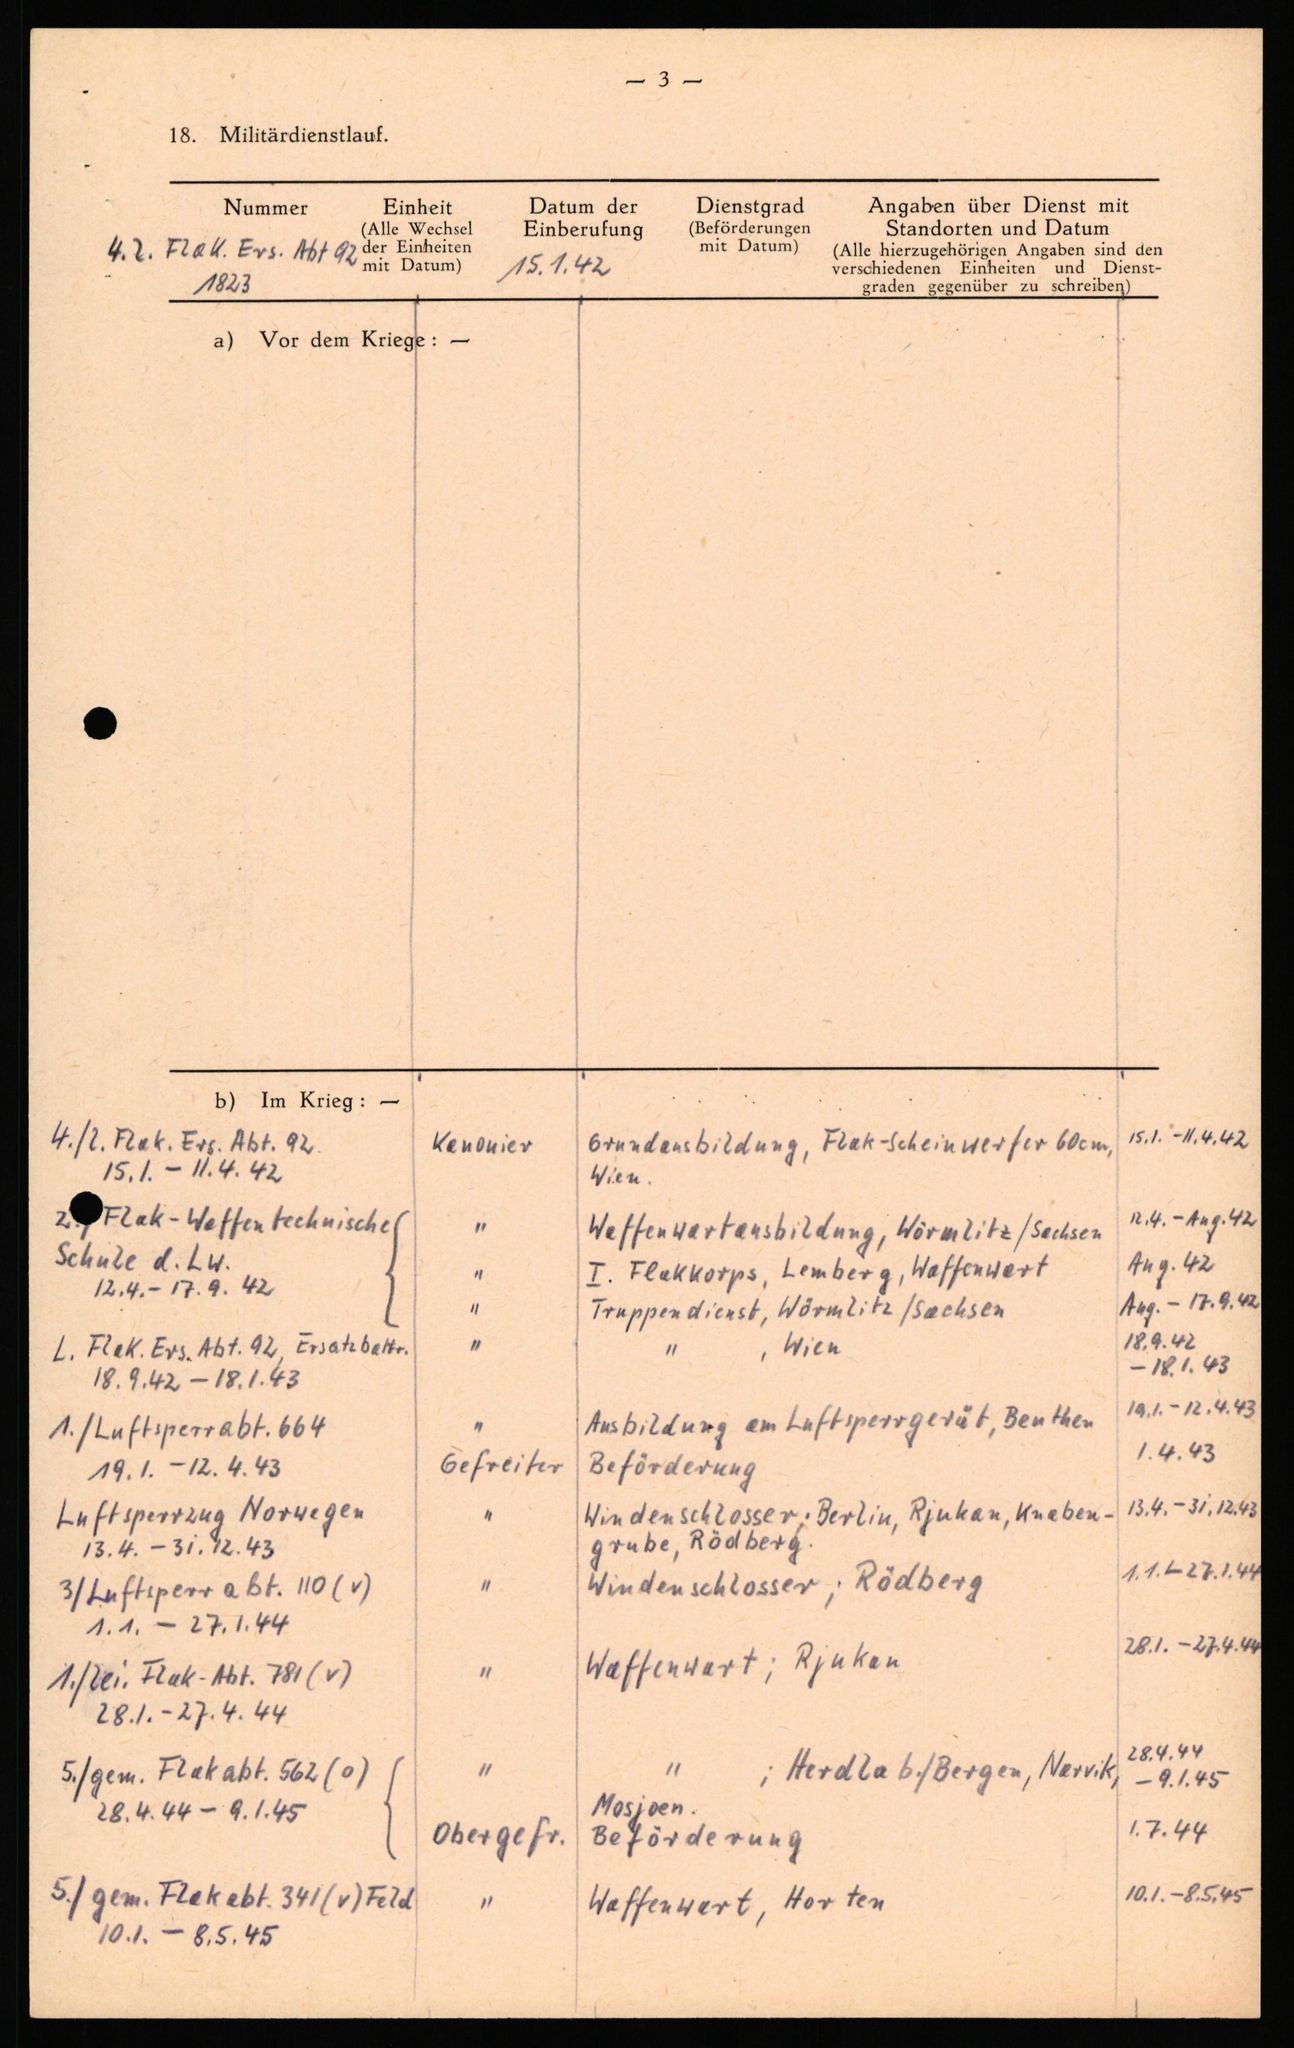 — 3 —
18. Militärdienstlauf.
Nummer
4. l. Flak. Ers. Abt 92
1823
Einheit
(Alle Wechsel
der Einheiten
mit Datum)
Datum der
Einberufung
15.1.42
Dienstgrad
(Beförderungen
mit Datum)
Angaben über Dienst mit
Standorten und Datum
(Alle hierzugehörigen Angaben sind den
verschiedenen Einheiten und Dienst-
graden gegenüber zu schreiben)
a) Vor dem Kriege: —
b) Im Krieg: —
4./l. Flak. Ers. Abt. 92 Kanonier Grundausbildung, Flak-Scheinwerfer 60cm, 15.1. – 11.4.42
15.1. – 11.4.42 Wien.
2./Flak-Waffentechnische " Waffenwartausbildung, Wörmlitz/Sachsen 12.4. – Aug. 42
Schule d. Lw. " I. Flakkorps, Lemberg, Waffenwart Aug. 42
12.4. – 17.9.42 " Truppendienst, Wörmlitz/Sachsen Aug. – 17.9.42
L. Flak. Ers. Abt. 92, Ersatzbattr. " " , Wien 18.9.42
18.9.42 – 18.1.43 – 18.1.43
1./Luftsperrabt. 664 " Ausbildung am Luftsperrgerät, Beuthen 19.1. – 12.4.43
19.1. – 12.4.43 Gefreiter Beförderung 1.4.43
Luftsperrzug Norwegen " Windenschlosser; Berlin, Rjukan, Knaben- 13.4. – 31.12.43
13.4. – 31.12.43 grube, Rödberg.
3/Luftsperrabt. 110 (v) " Windenschlosser; Rödberg 1.1. – 27.1.44
1.1. – 27.1.44
1./lei. Flak-Abt. 781 (v) " Waffenwart; Rjukan 28.1. – 27.4.44
28.1. – 27.4.44
5./gem. Flakabt. 562 (o) " " ; Herdla b./Bergen, Narvik, 28.4.44
28.4.44 – 9.1.45 Mosjoen. – 9.1.45
Obergefr. Beförderung 1.7.44
5./gem. Flakabt. 341 (v) Feld " Waffenwart, Horten 10.1. – 8.5.45
10.1. – 8.5.45